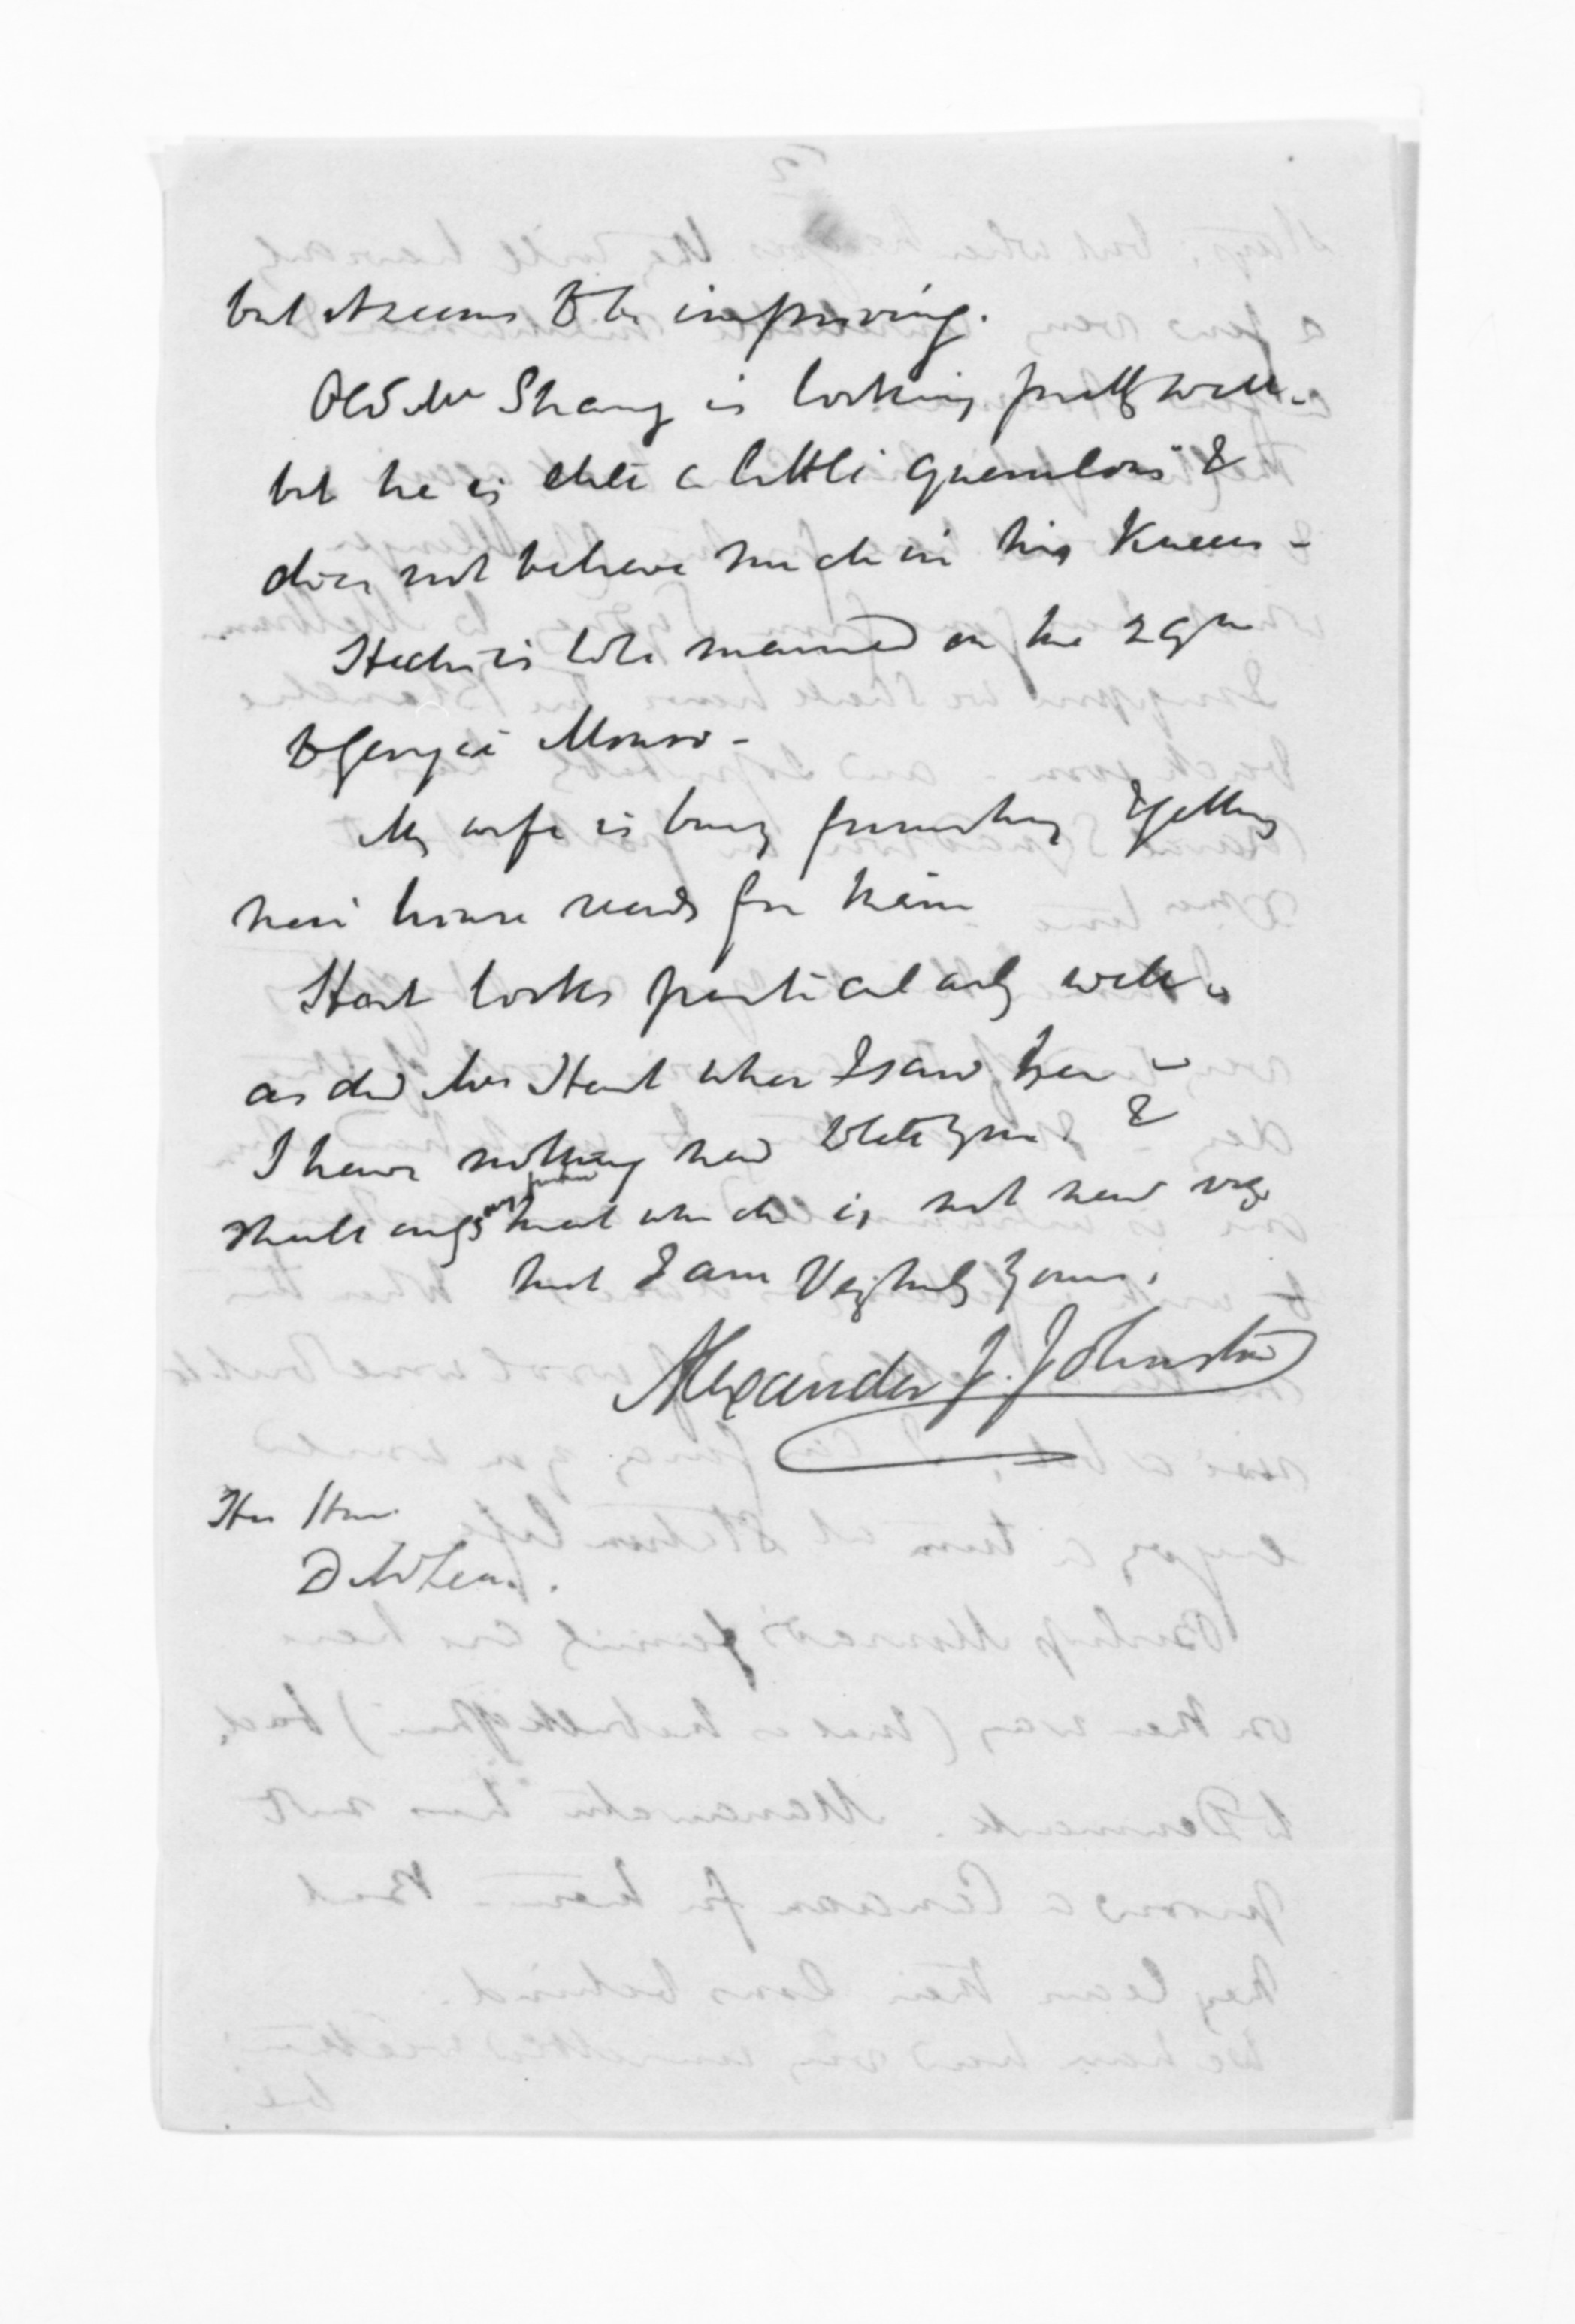 but it seems to be improving.
Old Mr Strang is looking pretty well -
but he is still a little querulous &
does not believe much in his Knees -
Hector is to be married on the 29th
to Georgie Monro -
My wife is busy furnishing & getting
their house ready for them
Hart looks particularly well -
as did Mrs Hart when I saw her -
I have nothing new to tell you. &
shall only say from that which is not new viz
that I am Very truly yours,
Alexander J. Johnston
The Hon
D McLean.